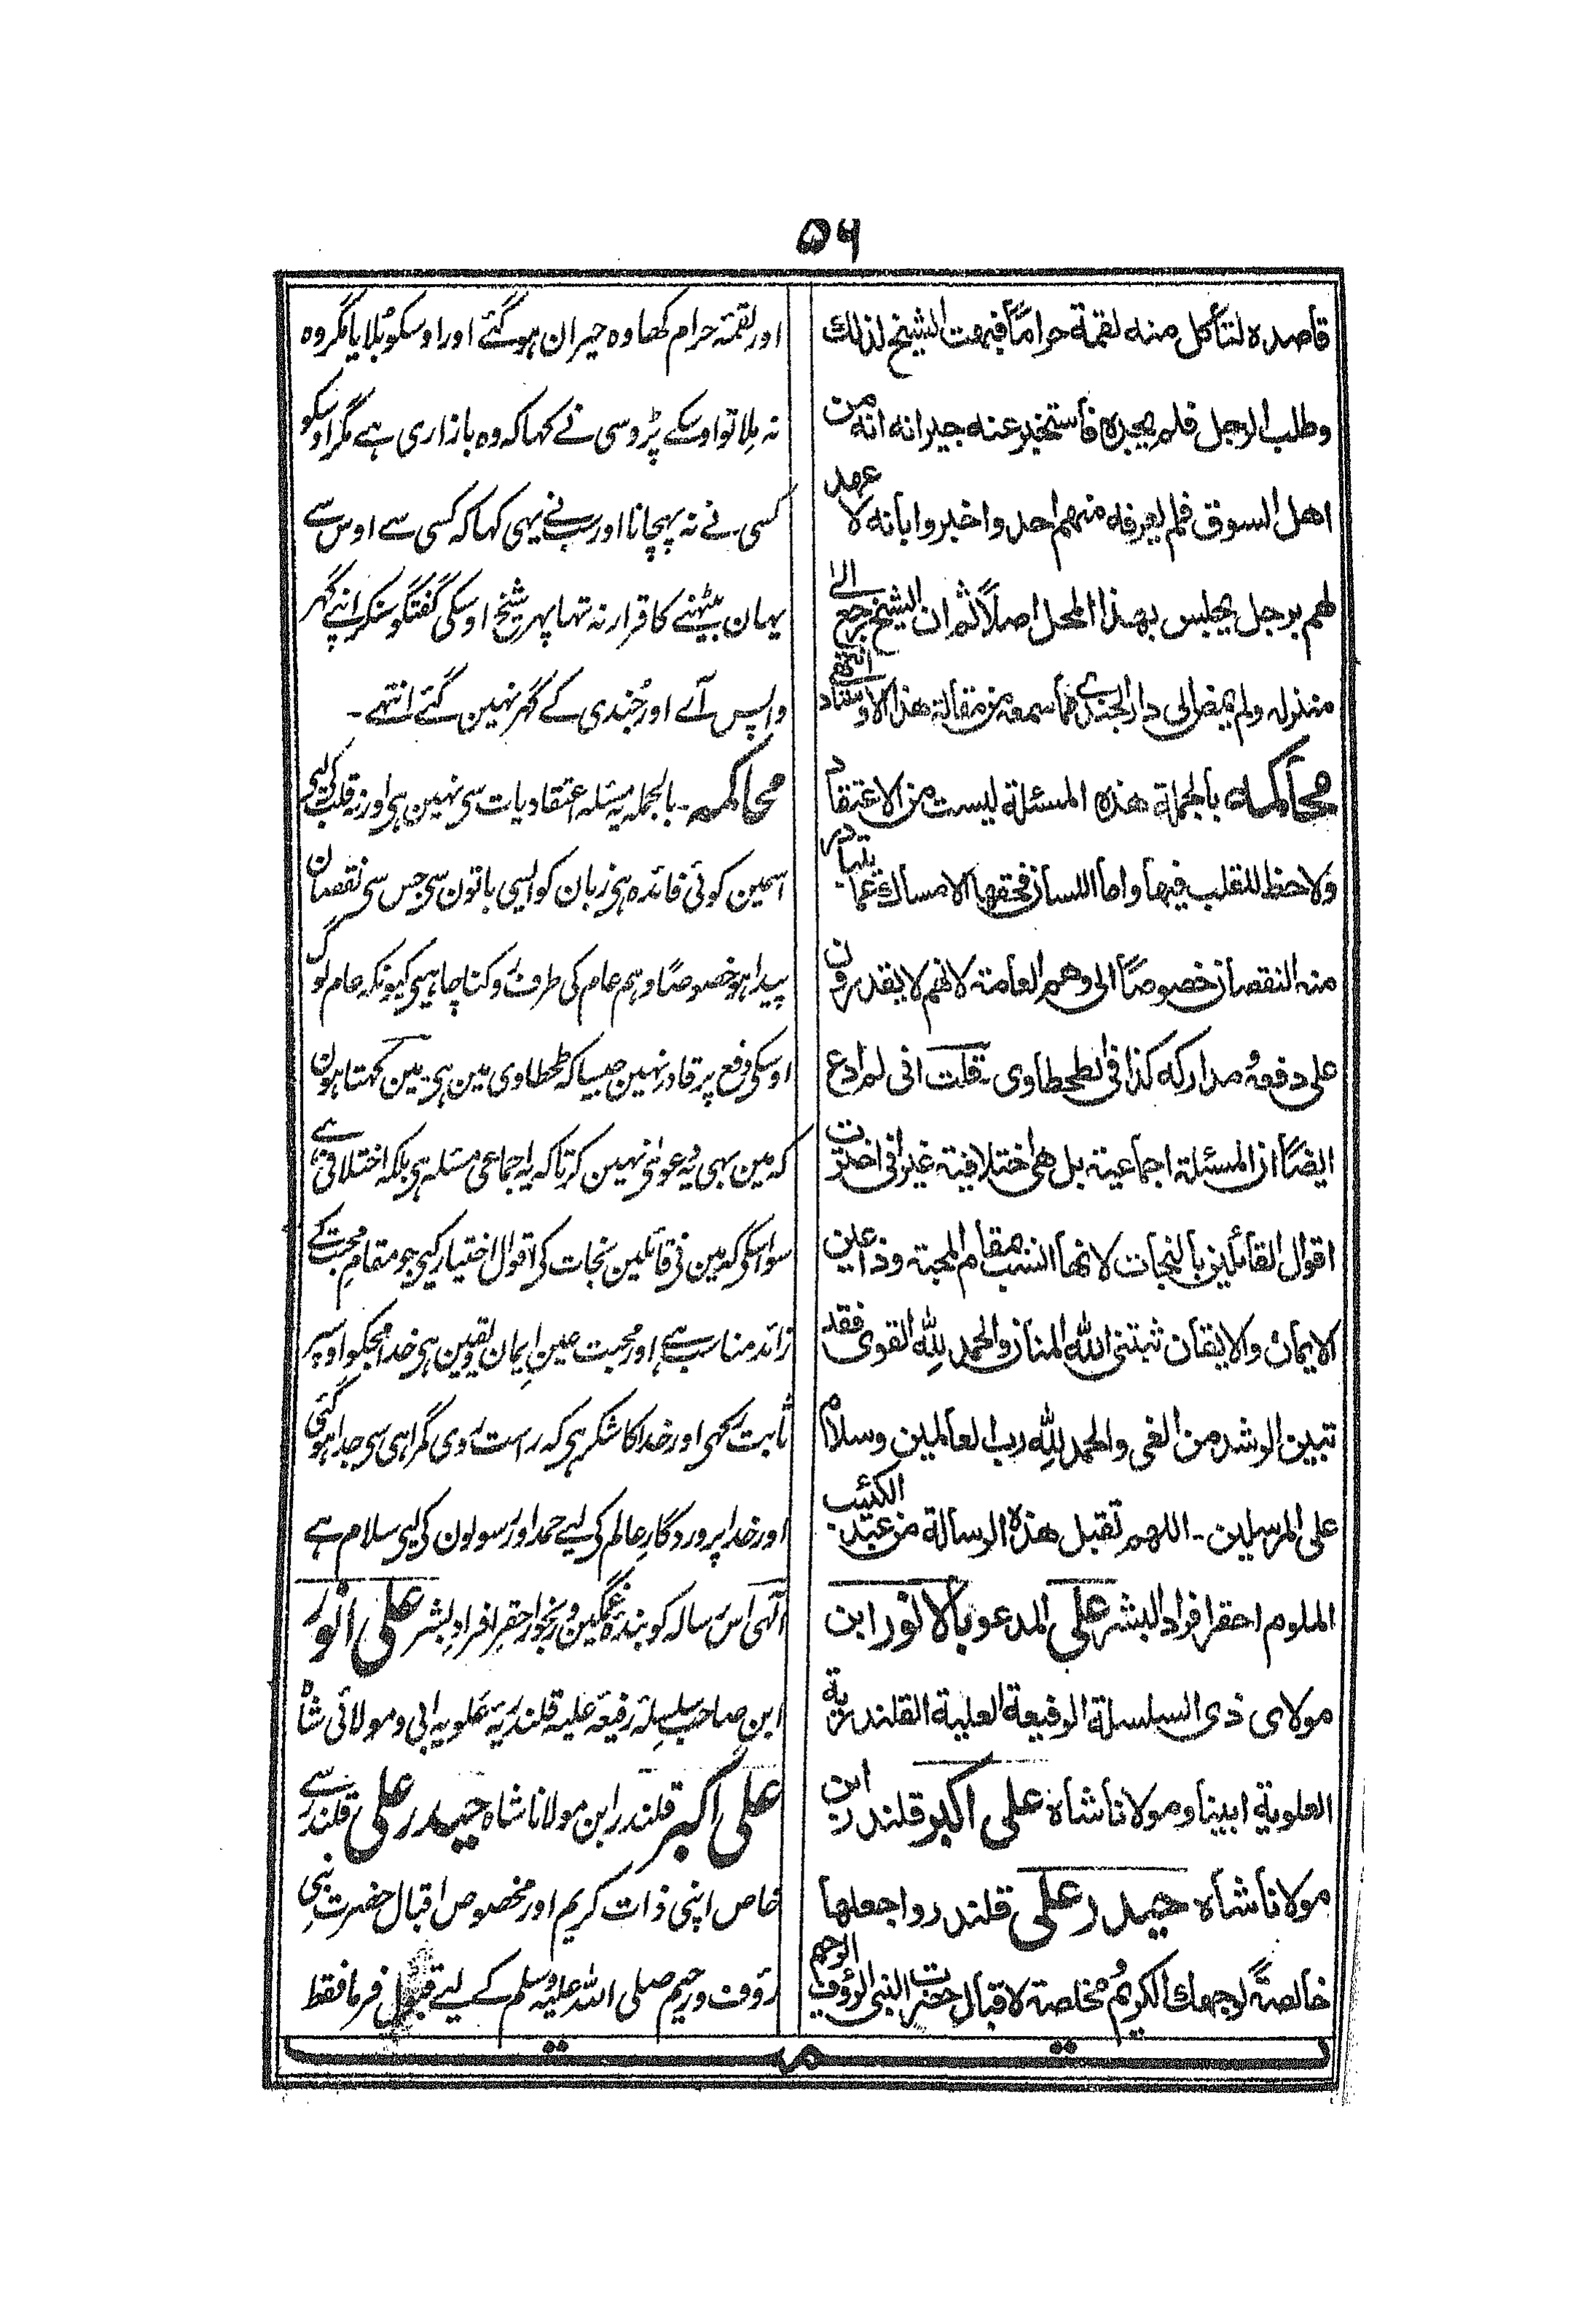 ۵۶
قاصده لتأكل منه لقمة حراماً فبهت الشيخ لذلك
وطلب الرجل فلم يجده فاستخبر عنه جيرانه انه من
اهل السوق فلم يعرفه منهم احد واخبروا بانه لا عهد
لهم برجل يجلس بهذا المحل اصلاً ثم ان الشيخ رجع الى
منزله ولم يمض الى دار الجندى مما سمعه من مقالة هذا الاوستاد انتهى
محاكمه بالجملة هذه المسئلة ليست من الاعتقاد
ولا حظ للقلب فيها واما اللسان فحقها الامساك عما يتبادر
منه النقصان خصوصاً الى وهم العامة لانهم لا يقدرون
على دفعه ومداركه كذا فى الطحطاوى ۔ قلت انى لم ادع
ايضاً ان المسئلة اجماعية بل هى اختلافية غير انى اخترت
اقوال القائلين بالنجات لانها انسب مقام المحبة وذا عين
الايمان والايقان ثبتنى الله المنان والحمد لله القوى فقد
تبين الرشد من الغى والحمد لله رب العالمين وسلام
على المرسلين ۔ اللهم تقبل هذه الرسالة من عبد الكئيب
الملوم احقر افراد البشر على المدعو بالانور ابن
مولاى ذى السلسلة الرفيعة العلية القلندرية
العلوية ابينا ومولانا شاه على اكبر قلندر ابن
مولانا شاه حيدر على قلندر واجعلها
خالصةً لوجهك الكريم ومخلصة لاقبال حضرت النبى الرؤف الرحيم
اور لقمئہ حرام کھا وہ حیران ہو گئے اور اوسکو بُلایا مگر وہ
نہ مِلا تو اوسکے پڑوسی نے کہا کہ وہ بازاری ہے مگر اوسکو
کسی نے نہ پہچانا اور سب نے یہی کہا کہ کسی سے اوس سے
یہان بیٹھنے کا قرار نہ تہا پہر شیخ اوسکی گفتگو سنکر اپنے گہر
واپس آے اور جُندی کے گہر نہین گئے انتہے ۔
محاکمہ ۔ بالجملہ یہ مسئلہ اعتقادیات سی نہین ہی اور نہ قلب کی لیی
اسمین کوئی فائدہ ہی زبان کو ایسی باتون سی جس سی نقصان
پیدا ہو خصوصًا وہم عام کی طرف روکنا چاہیی کیونکہ عام لوگ
اوسکی دفع پر قادر نہین جیسا کہ طحطاوی مین ہی ۔ مین کہتا ہون
کہ مین بہی یہ دعوٰی نہین کرتا کہ یہ اجماعی مسئلہ ہی بلکہ اختلافی ہے
سوا اسکی کہ مین نی قائلین نجات کی اقوال اختیار کیی جو مقام محبت کے
زائد مناسب ہے اور محبت عین ایمان و یقین ہی خدا مجکو اوسپر
ثابت رکہی اور خدا کا شکر ہی کہ راست روی گمراہی سی جدا ہو گئی
اور خدا پروردگارِ عالم کی لیے حمد اور رسولون کی لیی سلام ہے
الٰہی اس رسالہ کو بندۂ غمگین و رنجور احقر افراد بشر علی انور
ابن صاحب سلسِلۂ رفیعۂ علیۂ قلندریّہ علویہ ابی و مولائی شاہ
علی اکبر قلندر ابن مولانا شاہ حیدر علی قلندر سے
خاص اپنی ذات کریم اور مخصوص اقبال حضرت نبیِ
رؤف و رحیم صلی اللہ علیہ وسلم کے لیے قبول فرما فقط
تمت